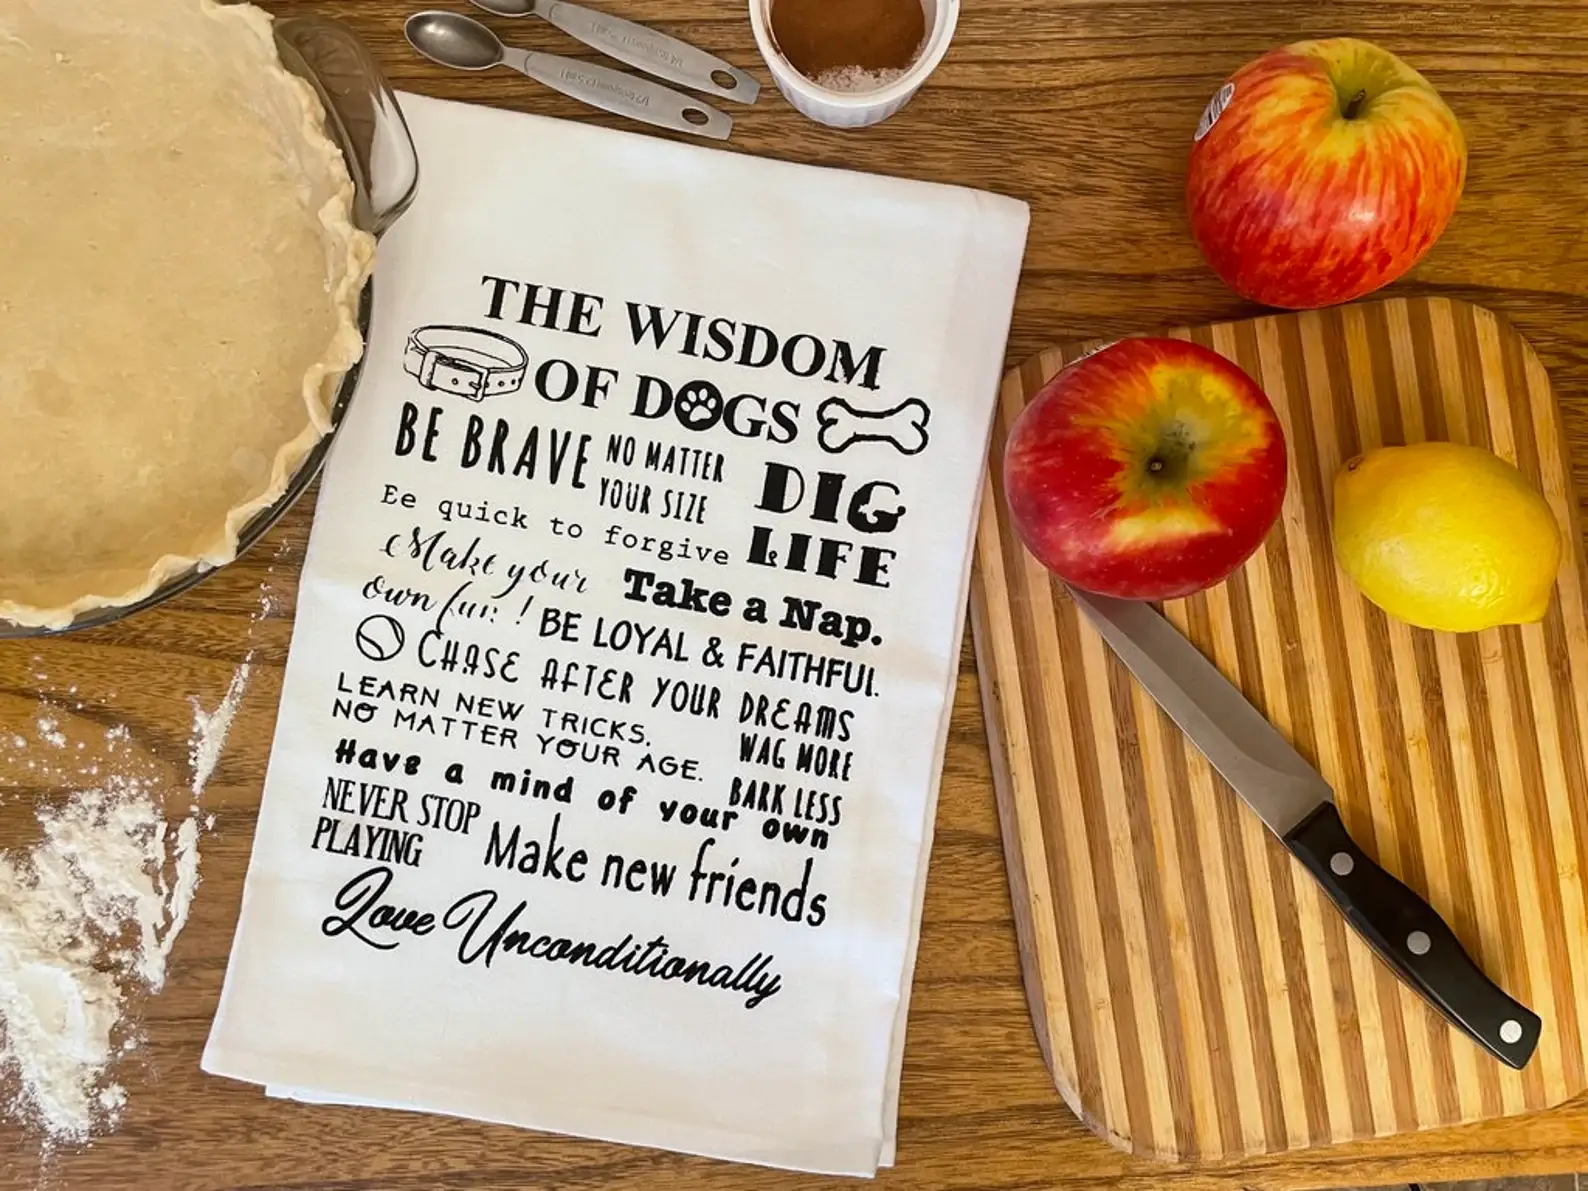 THE WISDOM
OF DOGS
BE BRAVE
NO MATTER
YOUR SIZE
DIG
LIFE
Ee quick to forgive
Make your
own fun!
Take a Nap.
BE LOYAL & FAITHFUL.
CHASE AFTER YOUR DREAMS
LEARN NEW TRICKS,
NO MATTER YOUR AGE.
WAG MORE
BARK LESS
Have a mind of your own
NEVER STOP
PLAYING
Make new friends
Love Unconditionally